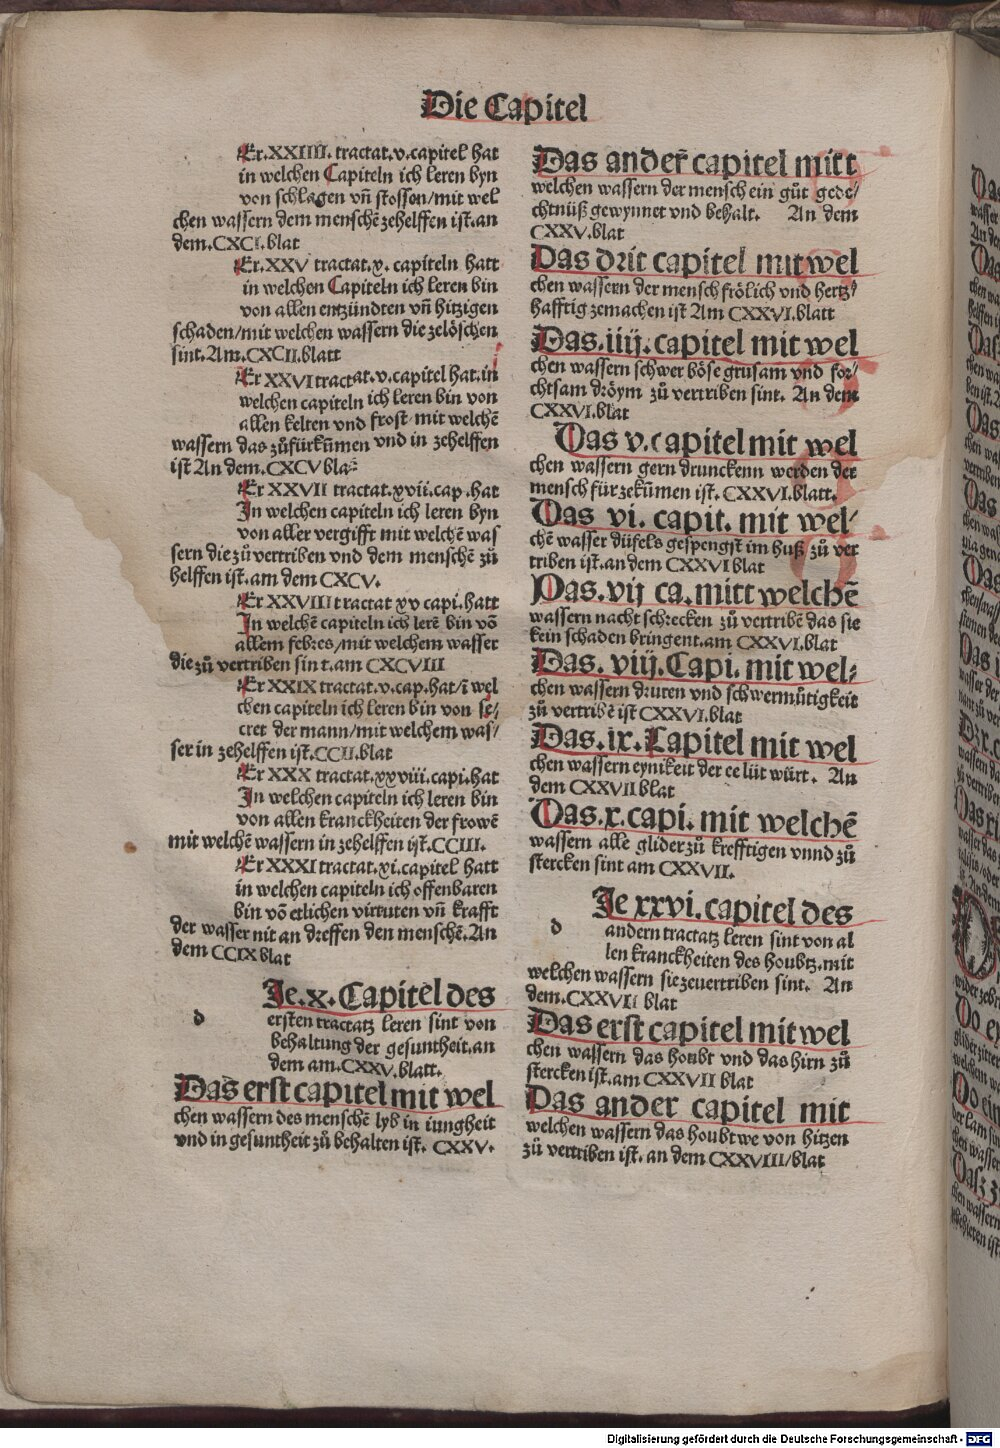 Die Capitel
Er.XXIIII. tractat.v.capitel hat
in welchen Capiteln ich leren byn
von schlagen vñ stossen/mit wel
chen wassern dem menschẽ zehelffen ist.an
dem.CXCI.blat
Er.XXV tractat.v. capiteln hatt
in welchen Capiteln ich leren bin
von allen entzündten vñ hitzigen
schaden/mit welchen wassern die zelöschen
sint.Am.CXCII.blatt
Er XXVI tractat.v.capitel hat.in
welchen capiteln ich leren bin von
allen kelten vnd frost/mit welchẽ
wassern das zůfürkům̃en vnd in zehelffen
ist An dem.CXCV blat
Er XXVII tractat.xvii.cap.hat
In welchen capiteln ich leren byn
von aller vergifft mit welchẽ was
sern die zů vertriben vnd dem menschẽ zů
helffen ist.am dem CXCV.
Er XXVIII tractat xv capi.hatt
In welchẽ capiteln ich lerẽ bin võ
allem febres/mit welchem wasser
die zů vertriben sint.am CXCVIII
Er XXIX tractat.v.cap.hat/ĩ wel
chen capiteln ich leren bin von se/
cret der mann/mit welchem was/
ser in zehelffen ist.CCII.blat
Er XXX tractat.xxviii.capi.hat
In welchen capiteln ich leren bin
von allen kranckheiten der frowẽ
mit welchẽ wassern in zehelffen ist.CCIII.
Er XXXI tractat.xi.capitel hatt
in welchen capiteln ich offenbaren
bin võ etlichen virtuten vñ krafft
der wasser nit an dreffen den menschẽ.An
dem CCIX blat
d
Je.x.Capitel des
ersten tractatz leren sint von
behaltung der gesuntheit.an
dem am.CXXV.blatt.
Das erst capitel mit wel
chen wassern des menschẽ lyb in iungheit
vnd in gesuntheit zů behalten ist. CXXV.
Dasander̃ capitel mitt
welchen wassern der mensch ein gůt gede/
chtnüß gewynnet vnd behalt. An dem
CXXV.blat
Das drit capitel mit wel
chen wassern der mensch frölich vnd hertz/
hafftig zemachen ist Am CXXVI.blatt
Das.iiij.capitel mit wel
chen wassern schwer böse grusam vnd for/
chtsam dröym zů vertriben sint. An dem
CXXVI.blat
Das v.capitel mit wel
chen wassern gern drunckenn werden der
mensch für zekům̃en ist. CXXVI.blatt.
Das vi. capit. mit wel/
chẽ wasser düfels gespengst im huß zů ver
triben ist.an dem CXXVI blat
Das.vij ca.mitt welchẽ
wassern nacht schrecken zů vertribẽ das sie
kein schaden bringent.am CXXVI.blat
Das.viij.Capi.mit wel⸗
chen wassern druten vnd schwermůtigkeit
zů vertribẽ ist CXXVI.blat
Das.ix.Capitel mit wel
chen wassern eynikeit der ee lüt würt. An
dem CXXVII blat
Das.x.capi.mit welchẽ
wassern alle glider zů krefftigen vnnd zů
stercken sint am CXXVII.
d
Je xxvi.capitel des
andern tractatz leren sint von al
len kranckheiten des houbtz.mit
welchen wassern sie zeuertriben sint. An
dem.CXXVII blat
Das erst capitel mit wel
chen wassern das houbt vnd das hirn zů
stercken ist.am CXXVII blat
Das ander capitel mit
welchen wassern das houbtwe von hitzen
zů vertriben ist. an dem CXXVIII/blat
Digitalisierung gefördert durch die Deutsche Forschungsgemeinschaft - DFG